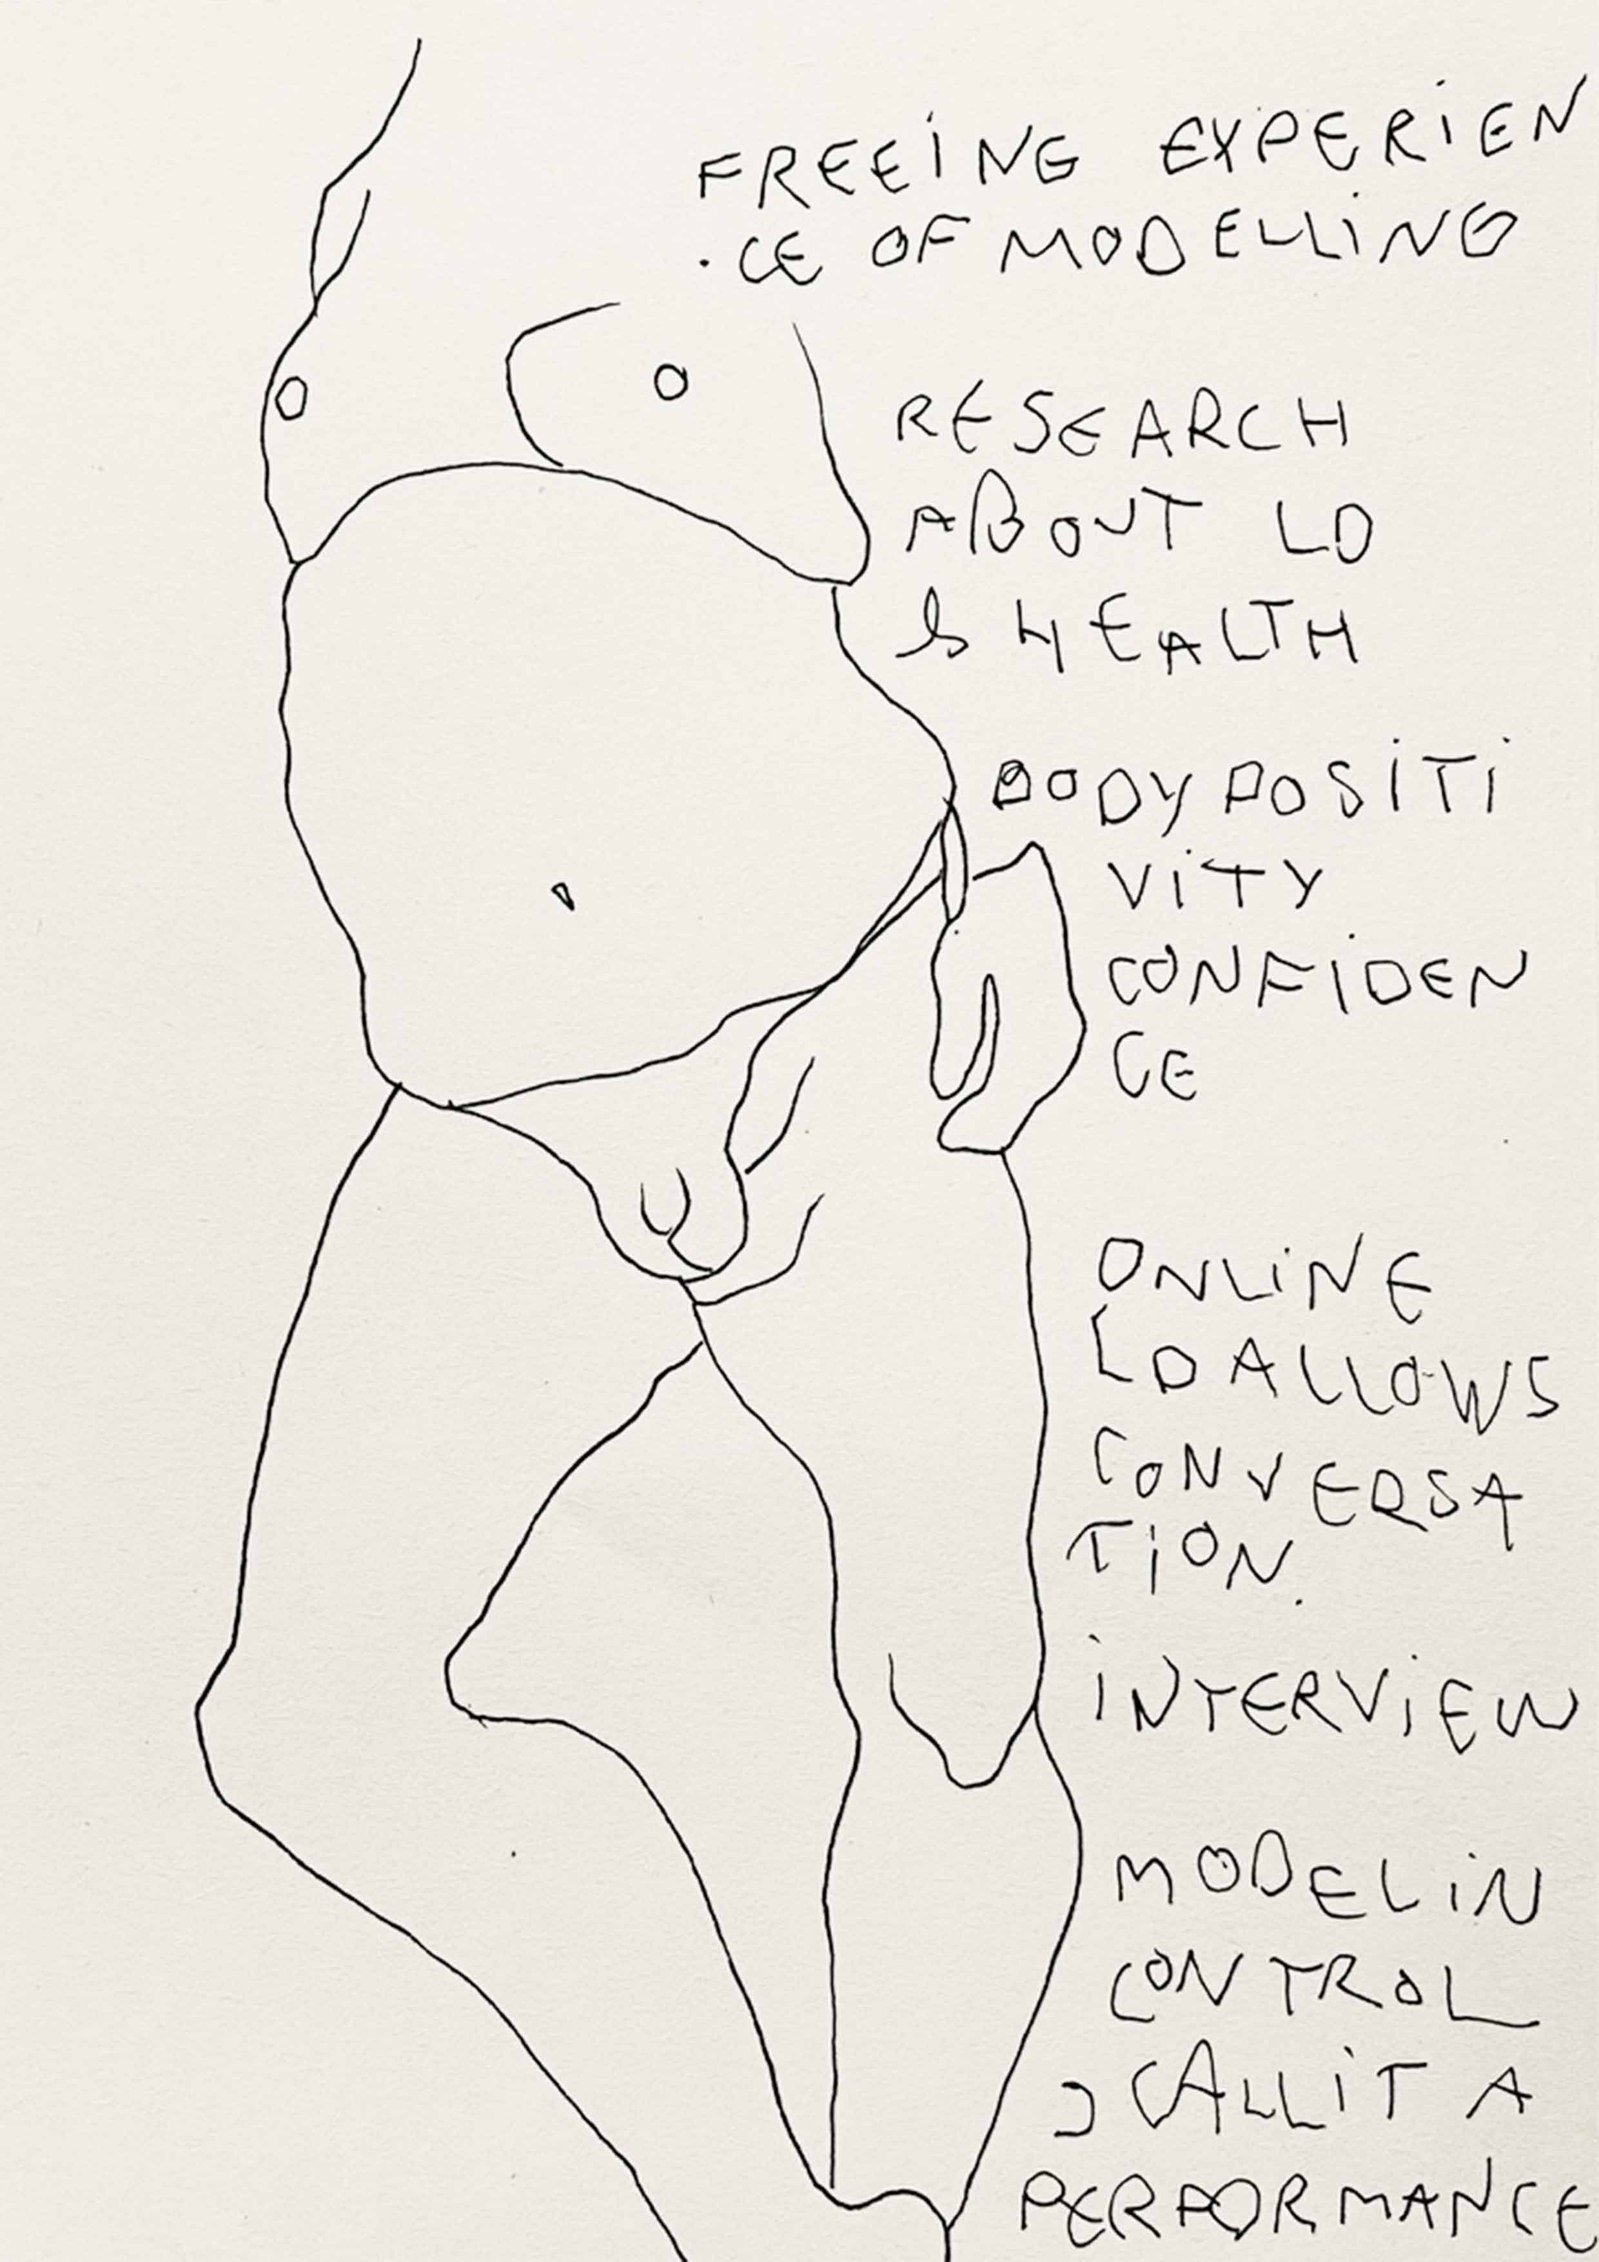 FREEING EXPERIEN
.CE OF MODELLING
RESEARCH
ABOUT LD
& HEALTH
BODYPOSITI
VITY
CONFIDEN
CE
ONLINE
LD ALLOWS
CONVERSA
TION.
INTERVIEW
MODEL IN
CONTROL
I CALL IT A
PERFORMANCE